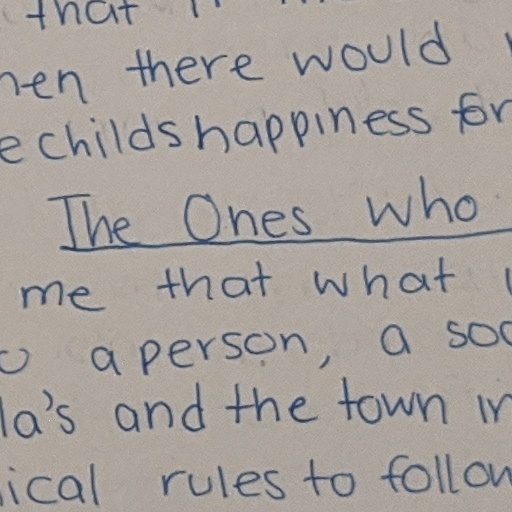 that
there would
childs happiness for
The Ones who
me that what
a person, a
and the town
rules to follow